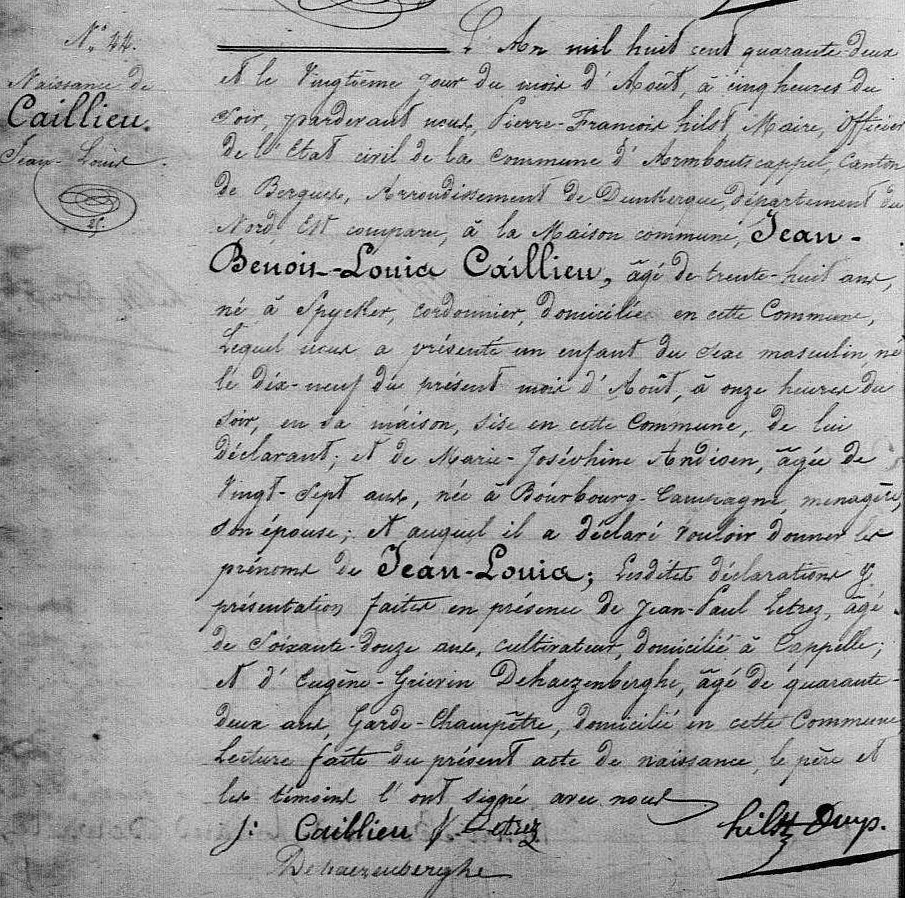 N.° 44.
Naissance de
Caillieu.
Jean-Louis.
L'An mil huit cent quarante-deux
et le Vingtième jour du mois d'Août, à cinq heures du
soir, pardevant nous, Pierre-François hilst, Maire, Officier
de l'Etat civil de la Commune d'Armboutscappel, Canton
de Bergues, Arrondissement de Dunkerque, département du
Nord, Est comparu, à la Maison commune, Jean-
Benoit-Louis Caillieu, âgé de trente-huit ans,
né à Spycker, cordonnier, domicilié en cette Commune,
Lequel nous a présenté un enfant du sexe masculin, né
le dix-neuf du présent mois d'Août, à onze heures du
soir, en sa maison, sise en cette Commune, de lui
déclarant; et de Marie-Joséphine Andisen, âgée de
Vingt-sept ans, née à Bourbourg-Campagne, menagère,
son épouse; et auquel il a déclaré vouloir donner les
prénoms de Jean-Louis; Lesdites déclarations &
présentation faites en présence de Jean-Paul Letrez, âgé
de soixante-douze ans, cultivateur, domicilié à Cappelle;
et d'Eugène-Grievin Dehaezenberghe, âgé de quarante-
deux ans, Garde-Champêtre, domicilié en cette Commune
Lecture faite du présent acte de naissance, le père et
les témoins l'ont signé avec nous.
J: Caillieu J-Letrez hilst
Dehaezenberghe